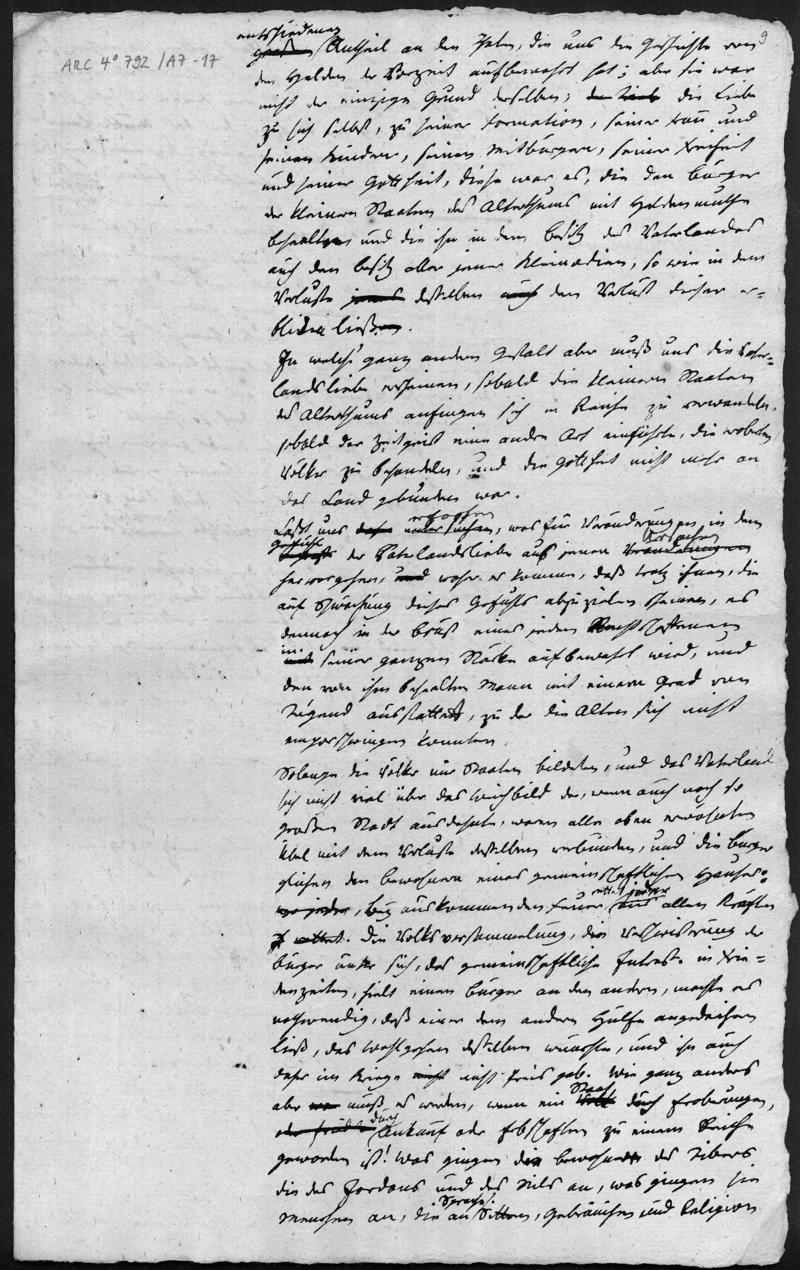 9
ARC 4° 792 / A7-17
entschiedenen
großen Antheil an den Thaten, die uns die Geschichte von
den Helden der Vorzeit aufbewahrt hat; aber sie war
nicht der einzige Grund derselben; die Liebe die Liebe
zu sich selbst, zu seiner Formation, seiner Frau und
seinen Kindern, seinen Mitbürgern, seiner Freiheit
und seiner Gottheit, diese war es, die den Bürger
der kleinern Staaten des Alterthums mit Heldenmuthe
beseelten und die ihn in dem Besitz des Vaterlandes
auch den Besitz aller jener Kleinodien, so wie in dem
Verluste jenes desselben auch den Verlust dieser er=
blicken ließen.
In welch' ganz andern Gestalt aber muß uns die Vater=
landsliebe erscheinen, sobald die kleinern Staaten
des Alterthums anfingen sich in Reiche zu verwandeln,
sobald der Zeitgeist eine andre Art einführte, die eroberten
Völker zu behandeln, und die Gottheit nicht mehr an
das Land gebunden war.
erforschen
Laßt uns untersuchen, was für Veränderungen in dem
Gefühle Ursachen
der Vaterlandsliebe aus jenen Veränderungen
hervorgehen, und woher es komme, daß trotz ihnen, die
auf Schwächung dieses Gefühls abzuzielen scheinen, es
dennoch in der Brust eines jeden Rechtschaffenen
in
mit seiner ganzen Stärke aufbewahrt wird, und
den von ihm beseelten Mann mit einem Grad von
Tugend ausstattet, zu der die Alten sich nicht
emporschwingen konnten.
Solange die Völker nur Staaten bildeten, und das Vaterland
sich nicht viel über das Weichbild der, wenn auch noch so
großen Stadt ausdehnte, waren alle oben erwähnten
Übel mit dem Verluste desselben verbunden, und die Bürger
glichen den Bewohnern eines gemeinschaftlichen Hauses:
rettet jeder
wo jeder, bey auskommendem Feuer, aus allen Kräften
rettet. Die Volksversammlung, die Verschwisterung der
Bürger unter sich, das gemeinschaftliche Intreße in Frie=
denszeiten, hielt einen Bürger an den andern, machte es
nothwendig, daß einer dem andern Hülfe angedeihen
ließ, das Wohlgehen desselben wünschte, und ihn auch
daher im Kriege nicht nicht Preis gab. Wie ganz anders
Staat
aber muß es werden, wenn ein Volk durch Eroberungen,
durch
oder Ankauf oder Erbschaften zu einem Reiche
geworden ist! Was gingen die Bewohner des Tibers
die des Jordans und des Nils an, was gingen sie
Sprache,
Menschen an, die an Sitten, Gebräuchen und Religion